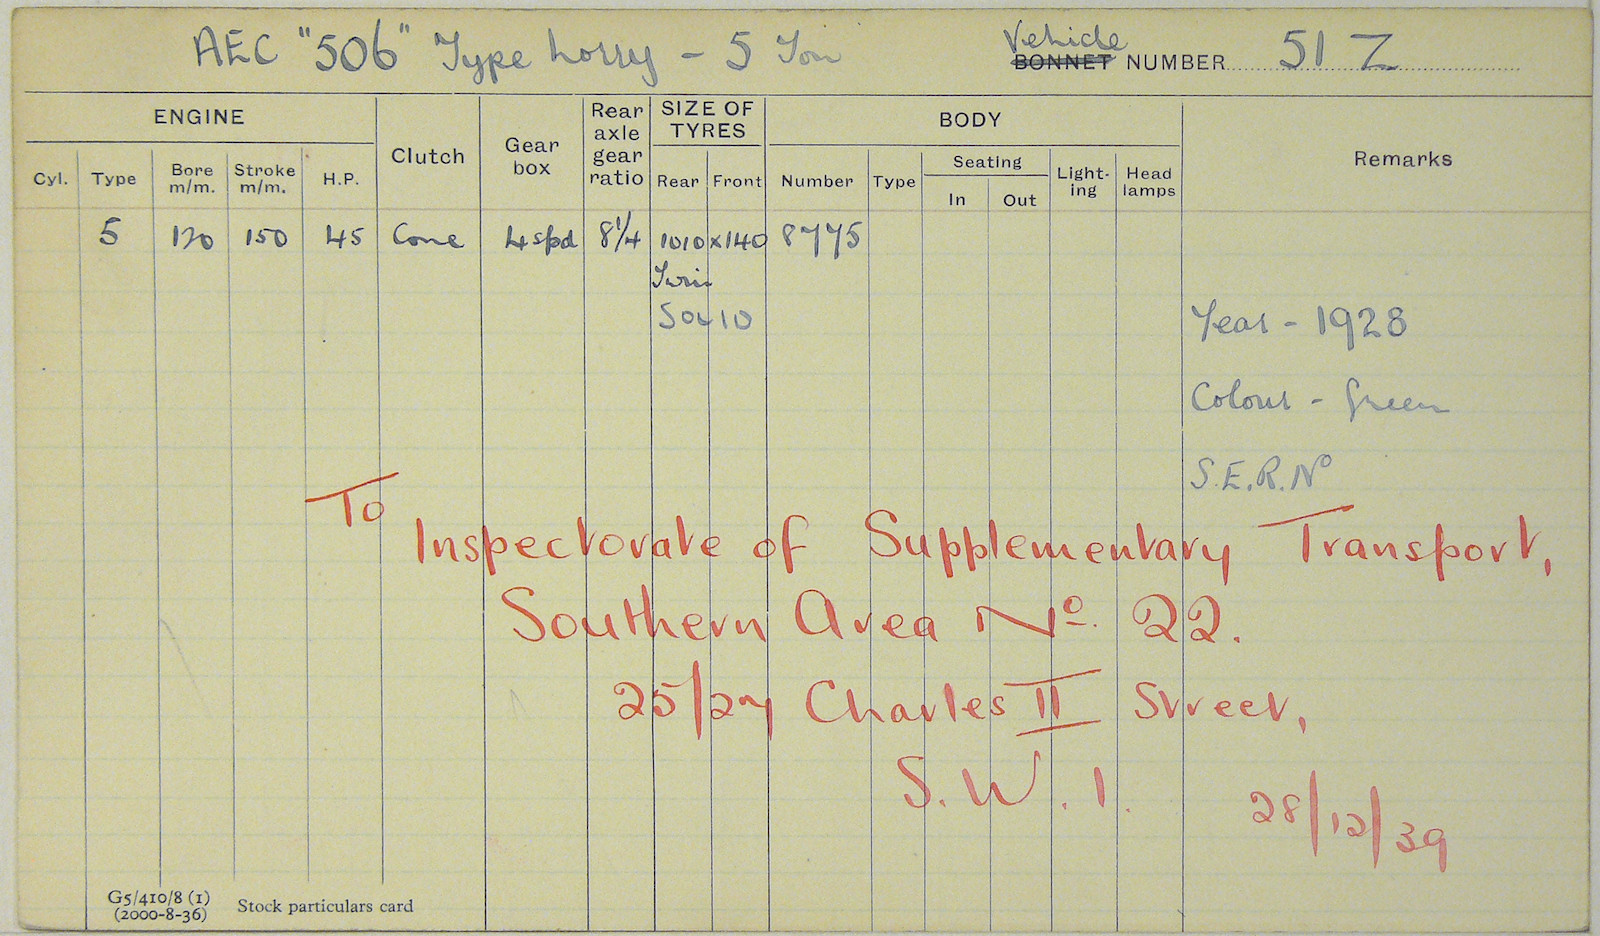 AEC "506" Type Lorry - 5 Ton
Vehicle
BONNET NUMBER 51 Z
ENGINE
Clutch
Gear box
Rear axle gear ratio
SIZE OF TYRES
BODY
Remarks
Cyl. Type Bore m/m. Stroke m/m. H.P. Rear Front Number Type Seating In Out Light-ing Head lamps
5 120 150 45 Cone 4 spd 8 1/4 1010 x 140 8775
Twin
Year - 1928
Colour - Green
S.E.R. No
To
Inspectorate of Supplementary Transport,
Southern Area No. 22.
25/27 Charles II Street,
S.W.1.
28/12/39
G5/410/8 (1)
(2000-8-36)
Stock particulars card